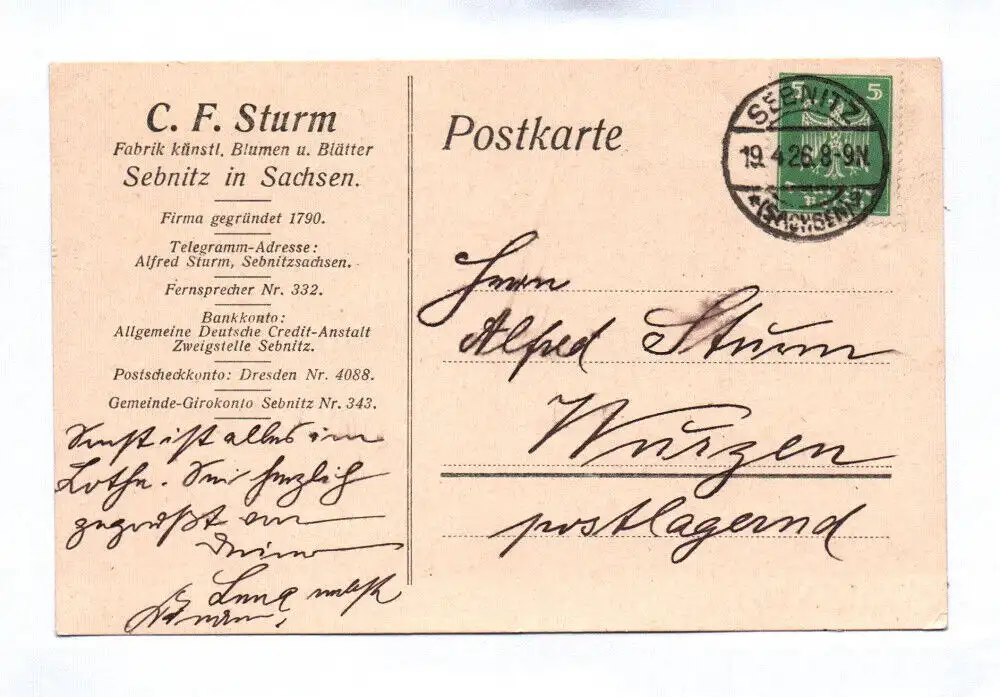 C. F. Sturm
Fabrik künstl. Blumen u. Blätter
Sebnitz in Sachsen.
Firma gegründet 1790.
Telegramm-Adresse:
Alfred Sturm, Sebnitzsachsen.
Fernsprecher Nr. 332.
Bankkonto:
Allgemeine Deutsche Credit-Anstalt
Zweigstelle Sebnitz.
Postscheckkonto: Dresden Nr. 4088.
Gemeinde-Girokonto Sebnitz Nr. 343.
Sonst ist alles im
Lothe. Sei herzlich
gegrüßt von
Deiner
Lena nebst
Postkarte
5 5
SEBNITZ
19.4.26.8-9N.
*(SACHSEN)
Herrn
Alfred Sturm
Wurzen
postlagernd